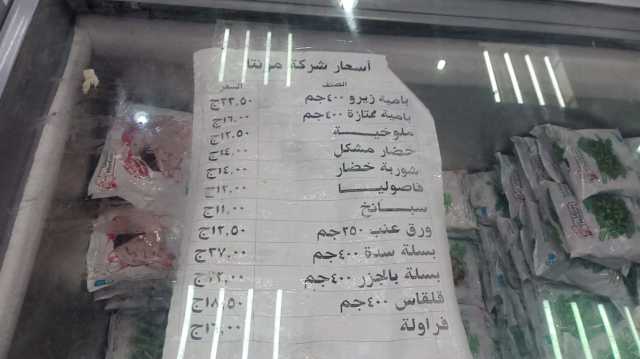 أسعار شركة مونتا
الصنف السعر
بامية زيرو ٤٠٠جم ٢٣.٥٠ج
بامية ممتازة ٤٠٠جم ١٦.٠٠ج
ملوخيـــــة ١٢.٥٠ج
خضار مشكل ١٤.٠٠ج
شوربة خضار ١٤.٠٠ج
فاصوليـــــا ١٢.٠٠ج
سبـــانخ ١١.٠٠ج
ورق عنب ٢٥٠جم ١٢.٥٠ج
بسلة سدة ٤٠٠جم ٢٧.٠٠ج
بسلة بالجزر ٤٠٠جم ١٢.٠٠ج
قلقاس ٤٠٠جم ١٨.٥٠ج
فراولة ١٦.٠٠ج